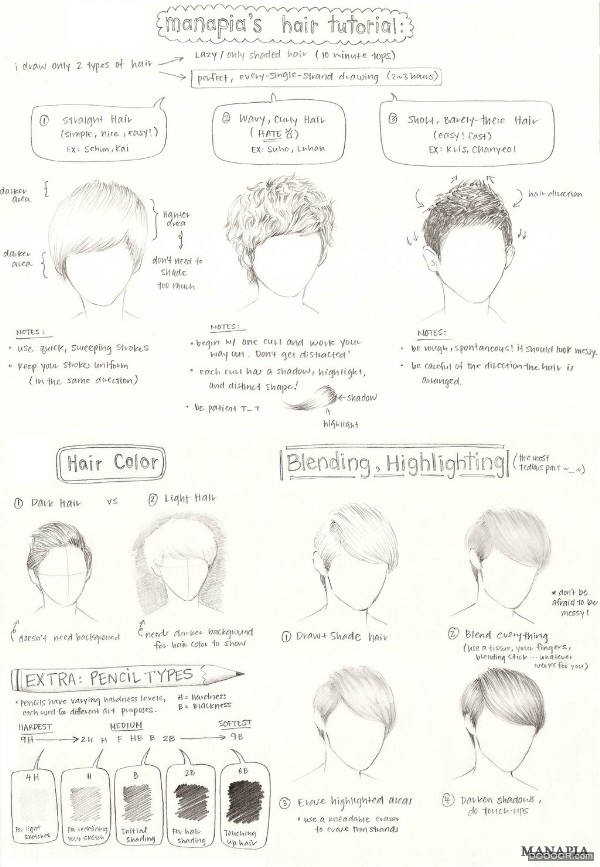 manapia's hair tutorial:
i draw only 2 types of hair
Lazy/only shaded hair (10 minute tops)
perfect, every-single-strand drawing (2~3 hours)
① Straight Hair
(simple, nice, easy!)
Ex: Sehun, Kai
② Wavy, Curly Hair
(HATE)
Ex: Suho, Luhan
③ Short, Barely-there Hair
(easy! fast)
Ex: Kris, Chanyeol
darker
area
darker
area
lighter
area
don't need to
shade
too much
hair direction
NOTES:
• use quick, sweeping strokes
• keep your strokes uniform
(in the same direction)
NOTES:
• begin w/ one curl and work your
way out. Don't get distracted!
• each curl has a shadow, highlight,
and distinct shape!
• be patient T_T
shadow
highlight
NOTES:
• be rough, spontaneous! It should look messy.
• be careful of the direction the hair is
arranged.
Hair Color
① Dark Hair vs ② Light Hair
doesn't need background
needs darker background
for hair color to show
Blending, Highlighting
(the most
tedious part ~_~)
① Draw + Shade hair
* don't be
afraid to be
messy!
② Blend everything
(use a tissue, your fingers,
blending stick... whatever
works for you)
③ Erase highlighted areas
* use a kneadable eraser
to erase thin strands
④ Darken shadows,
do touch-ups
EXTRA: PENCIL TYPES
• Pencils have varying hardness levels,
each used for different art purposes.
H = hardness
B = blackness
HARDEST MEDIUM SOFTEST
9H 2H H F HB B 2B 9B
4H
For light
sketches
H
For redefining
your sketch
B
Initial
shading
2B
For hair
shading
6B
Touching
up hair
MANAPIA